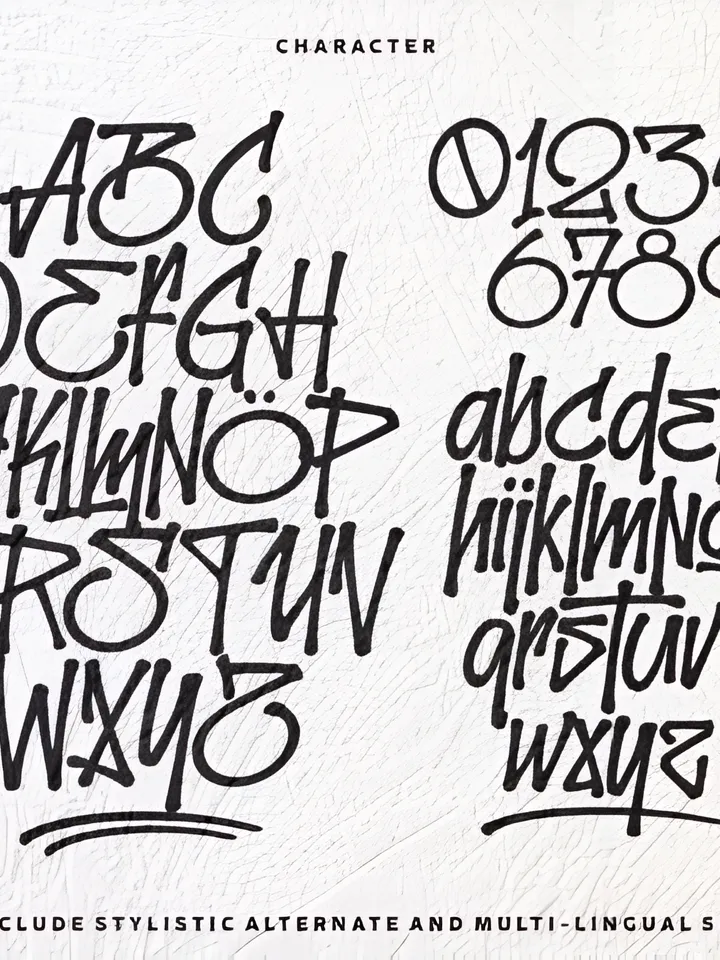 CHARACTER
ABC
DEFGH
KLMNÖP
RSTUV
WXYZ
0123
6789
abcde
hijklmno
qrstuv
wxyz
CLUDE STYLISTIC ALTERNATE AND MULTI-LINGUAL S